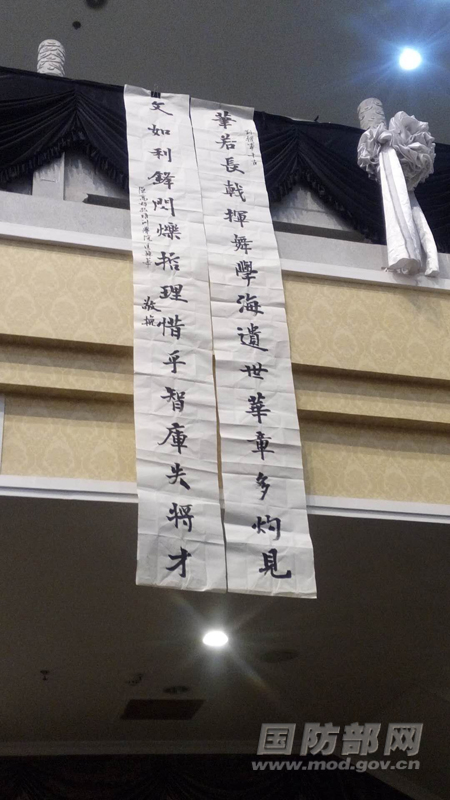 筆若長戟揮舞學海遺世華章多灼見
文如利鋒閃爍哲理惜乎智庫失將才
敬挽
国防部网
www.mod.gov.cn